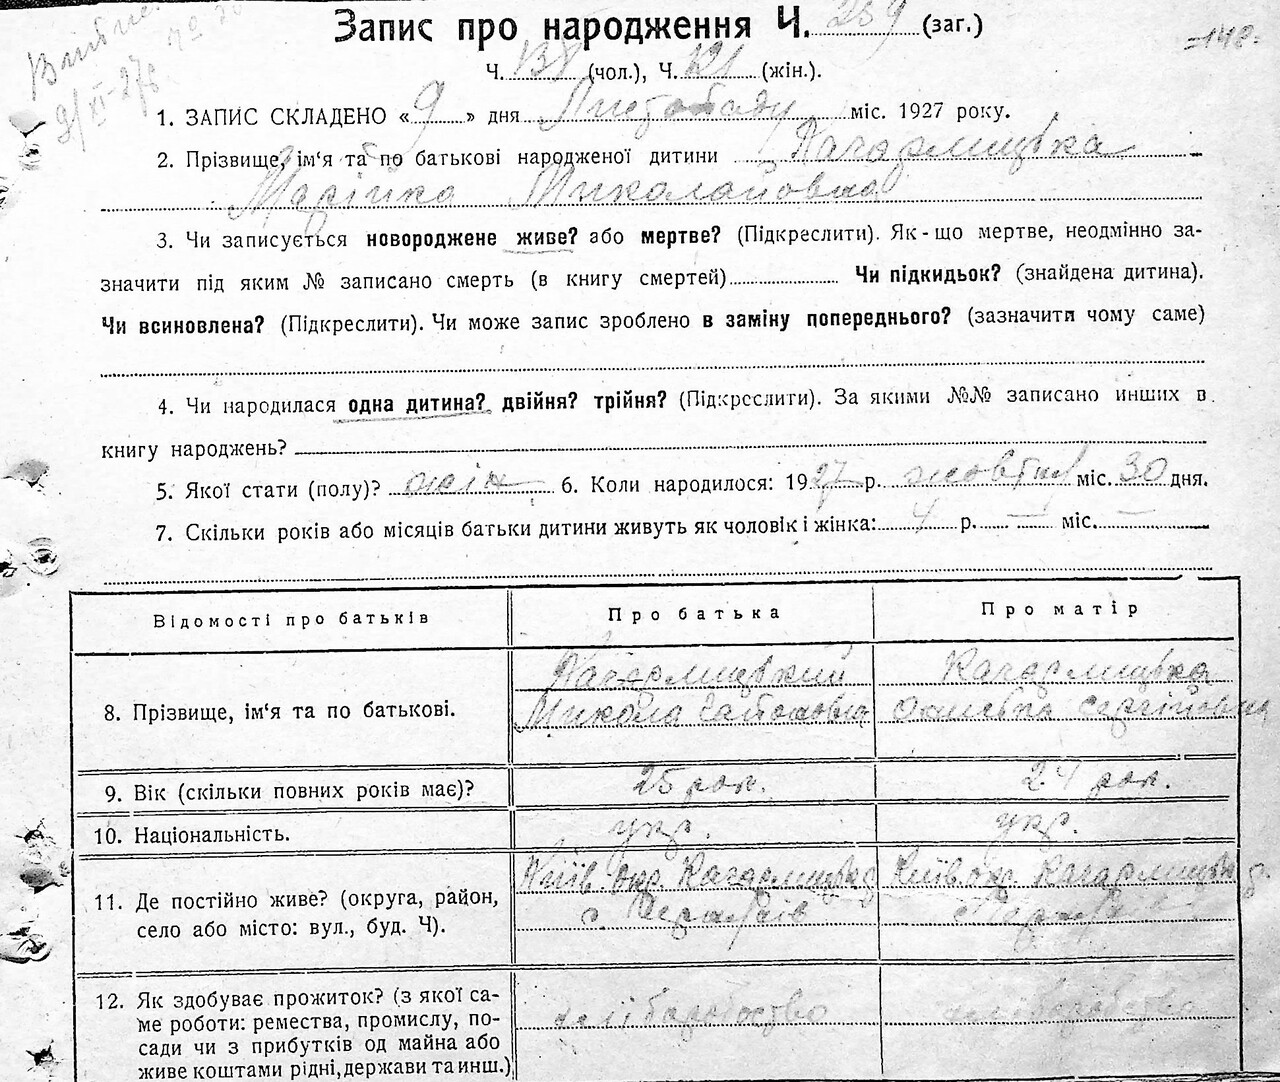 Запис про народження Ч. 259 (заг.)
Ч. 138 (чол.), Ч. 121 (жін.).
=148=
1. ЗАПИС СКЛАДЕНО «9» дня Листопаду міс. 1927 року.
2. Прізвище, ім'я та по батькові народженої дитини Кагарлицька
Марійка Миколаівна
3. Чи записується новороджене живе? або мертве? (Підкреслити). Як-що мертве, неодмінно за-
значити під яким № записано смерть (в книгу смертей) Чи підкидьок? (знайдена дитина).
Чи всиновлена? (Підкреслити). Чи може запис зроблено в заміну попереднього? (зазначити чому саме)
4. Чи народилася одна дитина? двійня? трійня? (Підкреслити). За якими №№ записано инших в
книгу народжень?
5. Якої стати (полу)? жін 6. Коли народилося: 1927 р. жовтня міс. 30 дня.
7. Скільки років або місяців батьки дитини живуть як чоловік і жінка: 4 р. — міс. —
Відомості про батьків Про батька Про матір
8. Прізвище, ім'я та по батькові. Кагарлицький Микола Кагарлицька Сергійовна
9. Вік (скільки повних років має)? 25 рок. 24 рок.
10. Національність. укр. укр.
11. Де постійно живе? (округа, район, Київ. окр. Кагарлицьк Київ. окр. Кагарлицьк
село або місто: вул., буд. Ч). с. с.
12. Як здобуває прожиток? (з якої са-
ме роботи: ремества, промислу, по- хліборобство хліборобство
сади чи з прибутків од майна або
живе коштами рідні, держави та инш.)